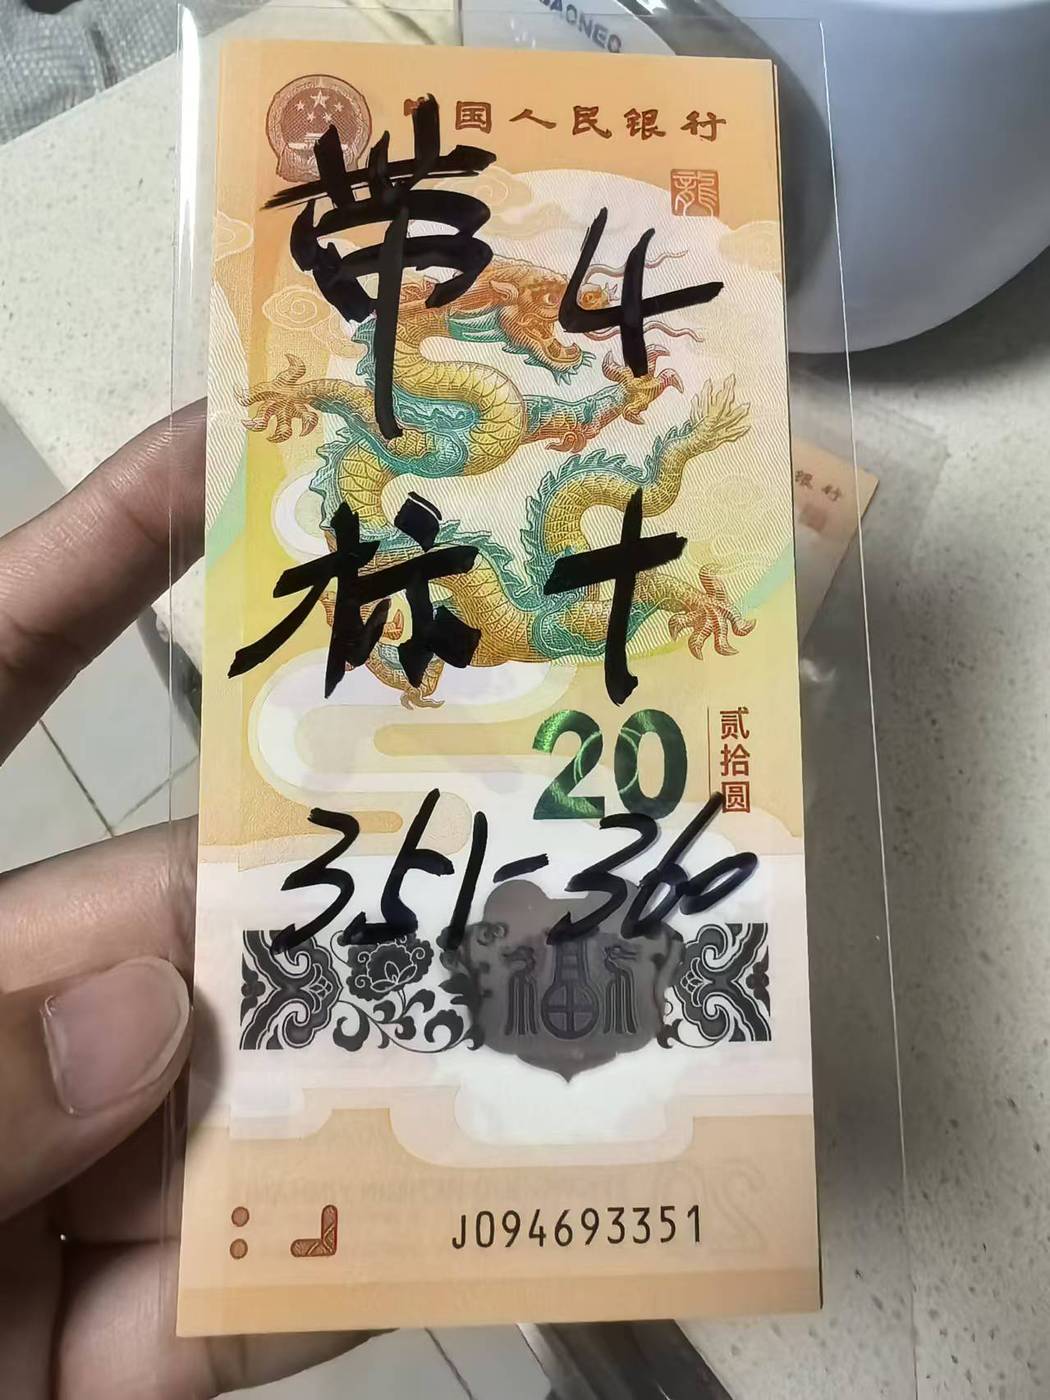 中国人民银行
龍
带4
标十
20
贰拾圆
351-360
福
J094693351
银行